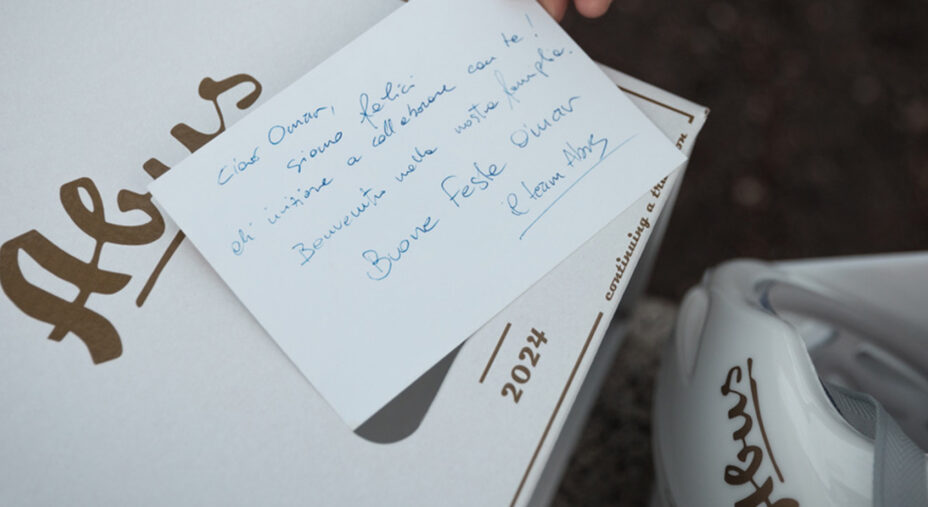 Abus
Ciao Omar,
siamo felici
di iniziare a collaborare con te!
Benvenuto nella nostra famiglia.
Buone Feste Omar
il team Abus
2024
continuing a
Abus